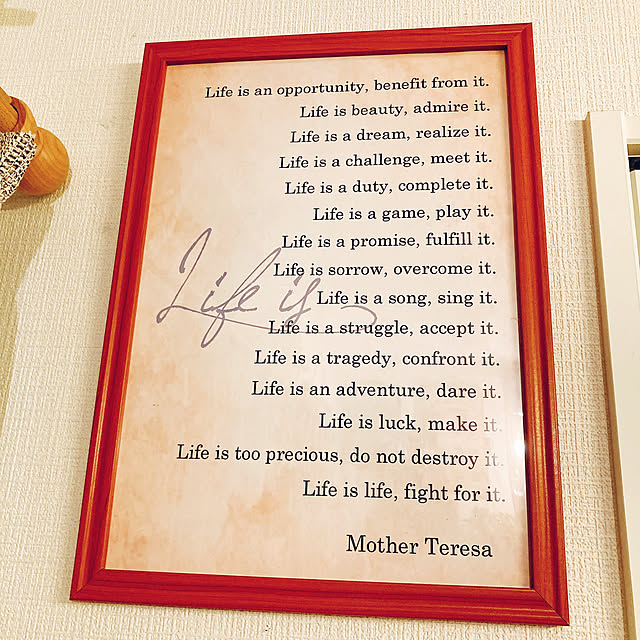 Life is an opportunity, benefit from it.
Life is beauty, admire it.
Life is a dream, realize it.
Life is a challenge, meet it.
Life is a duty, complete it.
Life is a game, play it.
Life is a promise, fulfill it.
Life is sorrow, overcome it.
Life is a song, sing it.
Life is a struggle, accept it.
Life is a tragedy, confront it.
Life is an adventure, dare it.
Life is luck, make it.
Life is too precious, do not destroy it.
Life is life, fight for it.
Mother Teresa
Life is